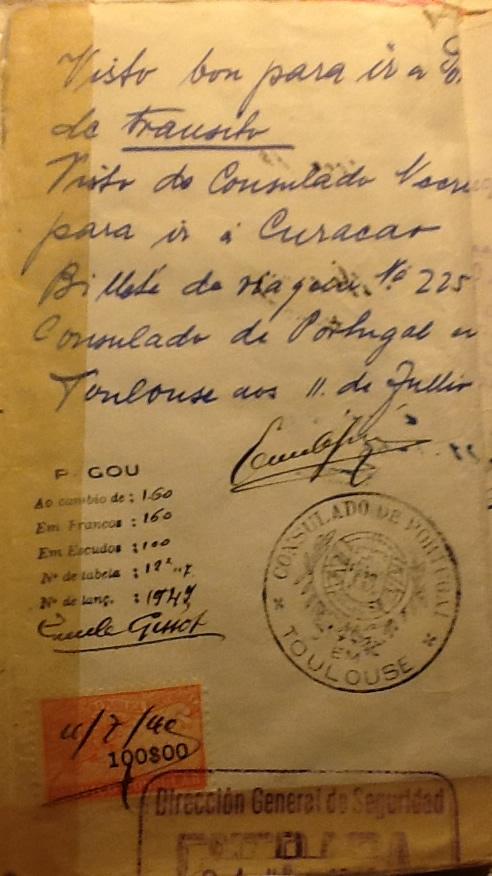 Visto bon para ir a
de transito
Visto do Consulado
para ir á Curacao
Billete de viagem Nº 225
Consulado de Portugal
Toulouse aos 11 de Julho
P. GOU
Ao cambio de : 1.60
Em Francos : 160
Em Escudos : 100
Nº de tabela :
Nº de lanç. : 1947
Emile Gissot
CONSULADO DE PORTUGAL
EM
TOULOUSE
11/7/40
100$00
Dirección General de Seguridad
ENTRADA